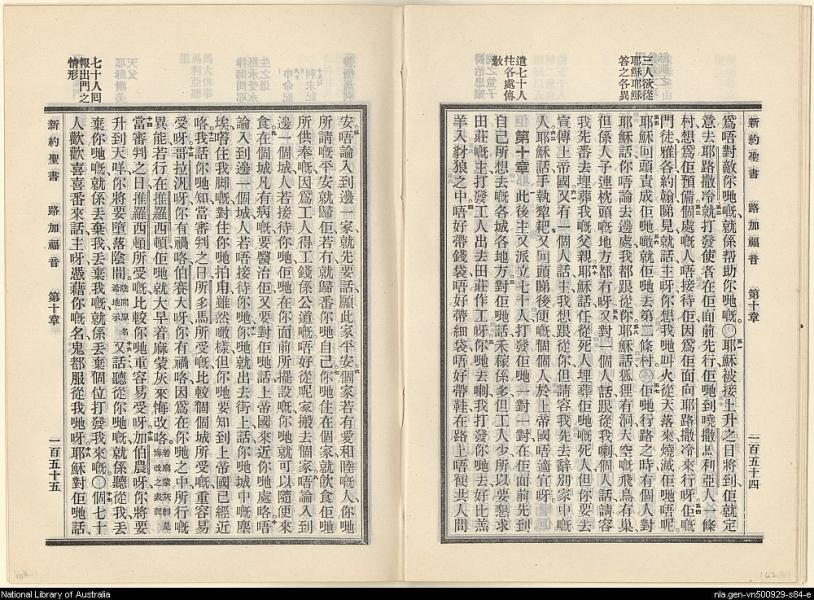 三人欲從
耶穌耶穌
答之各異
遣七十人
往各處傳
教
新約聖書 路加福音 第十章 一百五十四
爲唔對敵你哋嘅就係帮助你哋嘅〇耶穌被接上升之日將到佢就定
意去耶路撒冷就打發使者在佢面前先行佢哋到嘵撒馬利亞人一條
村想爲佢預備個處嘅人唔接待佢因爲佢面向耶路撒冷來行呀佢嘅
門徒雅各約翰睇見就話主呀你想我哋叫火從天落來燒滅佢哋唔呢
耶穌回頭責成佢哋嗽就佢哋去第二條村〇佢哋行路之時有個人對
耶穌話你唔論去邊處我都跟從你耶穌話狐狸有洞天空嘅飛鳥有巢
但係人子連枕頭嘅地方都冇呀又對一個人話跟從我喇個人話請容
我先番去埋葬我嘅父親耶穌話任從死人埋葬佢哋嘅死人但你要去
宣傳上帝國又有一個人話主我想跟從你但請容我先去辭別家中嘅
人耶穌話手執犂耙又回頭睇後便嘅個個人於上帝國唔適宜呀
第十章 此後主又派立七十人打發佢哋一對一對在佢面前先到
自己所想去嘅各城各地方對佢哋話禾稼係多但工人少所以要懇求
田莊嘅主打發工人出去田莊作工呀你哋去喇我打發你哋去好比羔
羊入豺狼之中唔好帶錢袋唔好帶細袋唔好帶鞋在路上唔使共人問
七十人囘
報出門之
情形
新約聖書 路加福音 第十章 一百五十五
安唔論入到邊一家就先要話願此家平安個家若有愛和睦嘅人你哋
所請嘅平安就歸佢若冇就歸番你哋自己你哋住在個家就飲食佢哋
所供奉嘅因爲工人得工錢係公道嘅唔好從呢家搬去個家唔論入到
邊一個城人若接待你哋佢哋在你面前所擺設嘅你哋就可以隨便來
食在個城凡有病嘅要醫治佢又要對佢哋話上帝國來近你哋處咯唔
論入到邊一個城人若唔接待你哋你哋就出去街上話你哋城中嘅塵
埃黐住我脚嘅對住你哋拍甩雖然噉樣但你哋要知到上帝國已經近
咯我話你哋知當審判之日所多馬所受嘅比較個個城所受嘅重容易
受呀哥拉汎呀你有禍咯伯賽大呀你有禍咯因爲在你哋之中所行嘅
異能若行在推羅西頓佢哋就大早着麻蒙灰來悔改咯
當審判之日推羅西頓所受嘅比較你哋重容易受呀加伯農呀你將要
升到天咩你將要墮落陰間 陰間原名希地示 又話聽從你哋嘅就係聽從我丟
棄你哋嘅就係丟棄我丟棄我嘅就係丟棄個位打發我來嘅〇個七十
人歡歡喜喜番來話主呀憑藉你嘅名鬼都服從我哋呀耶穌對佢哋話
National Library of Australia
nla.gen-vn500929-s84-e